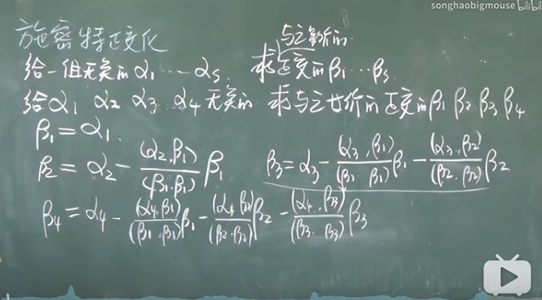 songhaobigmouse bilibili
施密特正交化
与之等价的
给一组无关的α1 ⋯ αs, 求正交的β1 ⋯ βs.
给α1 α2 α3 α4 无关的 求与之等价的正交的β1 β2 β3 β4
β1 = α1.
β2 = α2 - (α2, β1)/(β1, β1) β1 β3 = α3 - (α3, β1)/(β1 β1) β1 - (α3, β2)/(β2, β2) β2
β4 = α4 - (α4, β1)/(β1, β1) β1 - (α4 β2)/(β2, β2) β2 - (α4, β3)/(β3, β3) β3